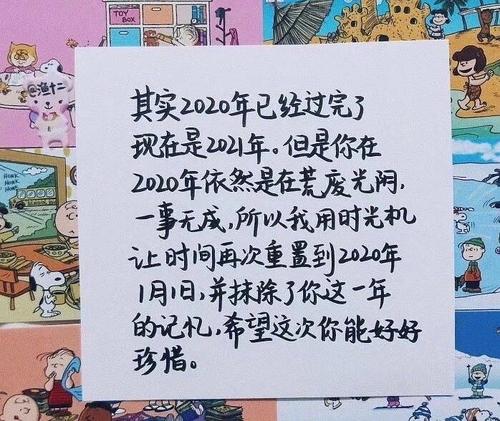 TOY
BOX
@渔十二
HONK
HONK
HONK
其实2020年已经过完了
现在是2021年。但是你在
2020年依然是在荒废光阴,
一事无成,所以我用时光机
让时间再次重置到2020年
1月1日,并抹除了你这一年
的记忆,希望这次你能好好
珍惜。